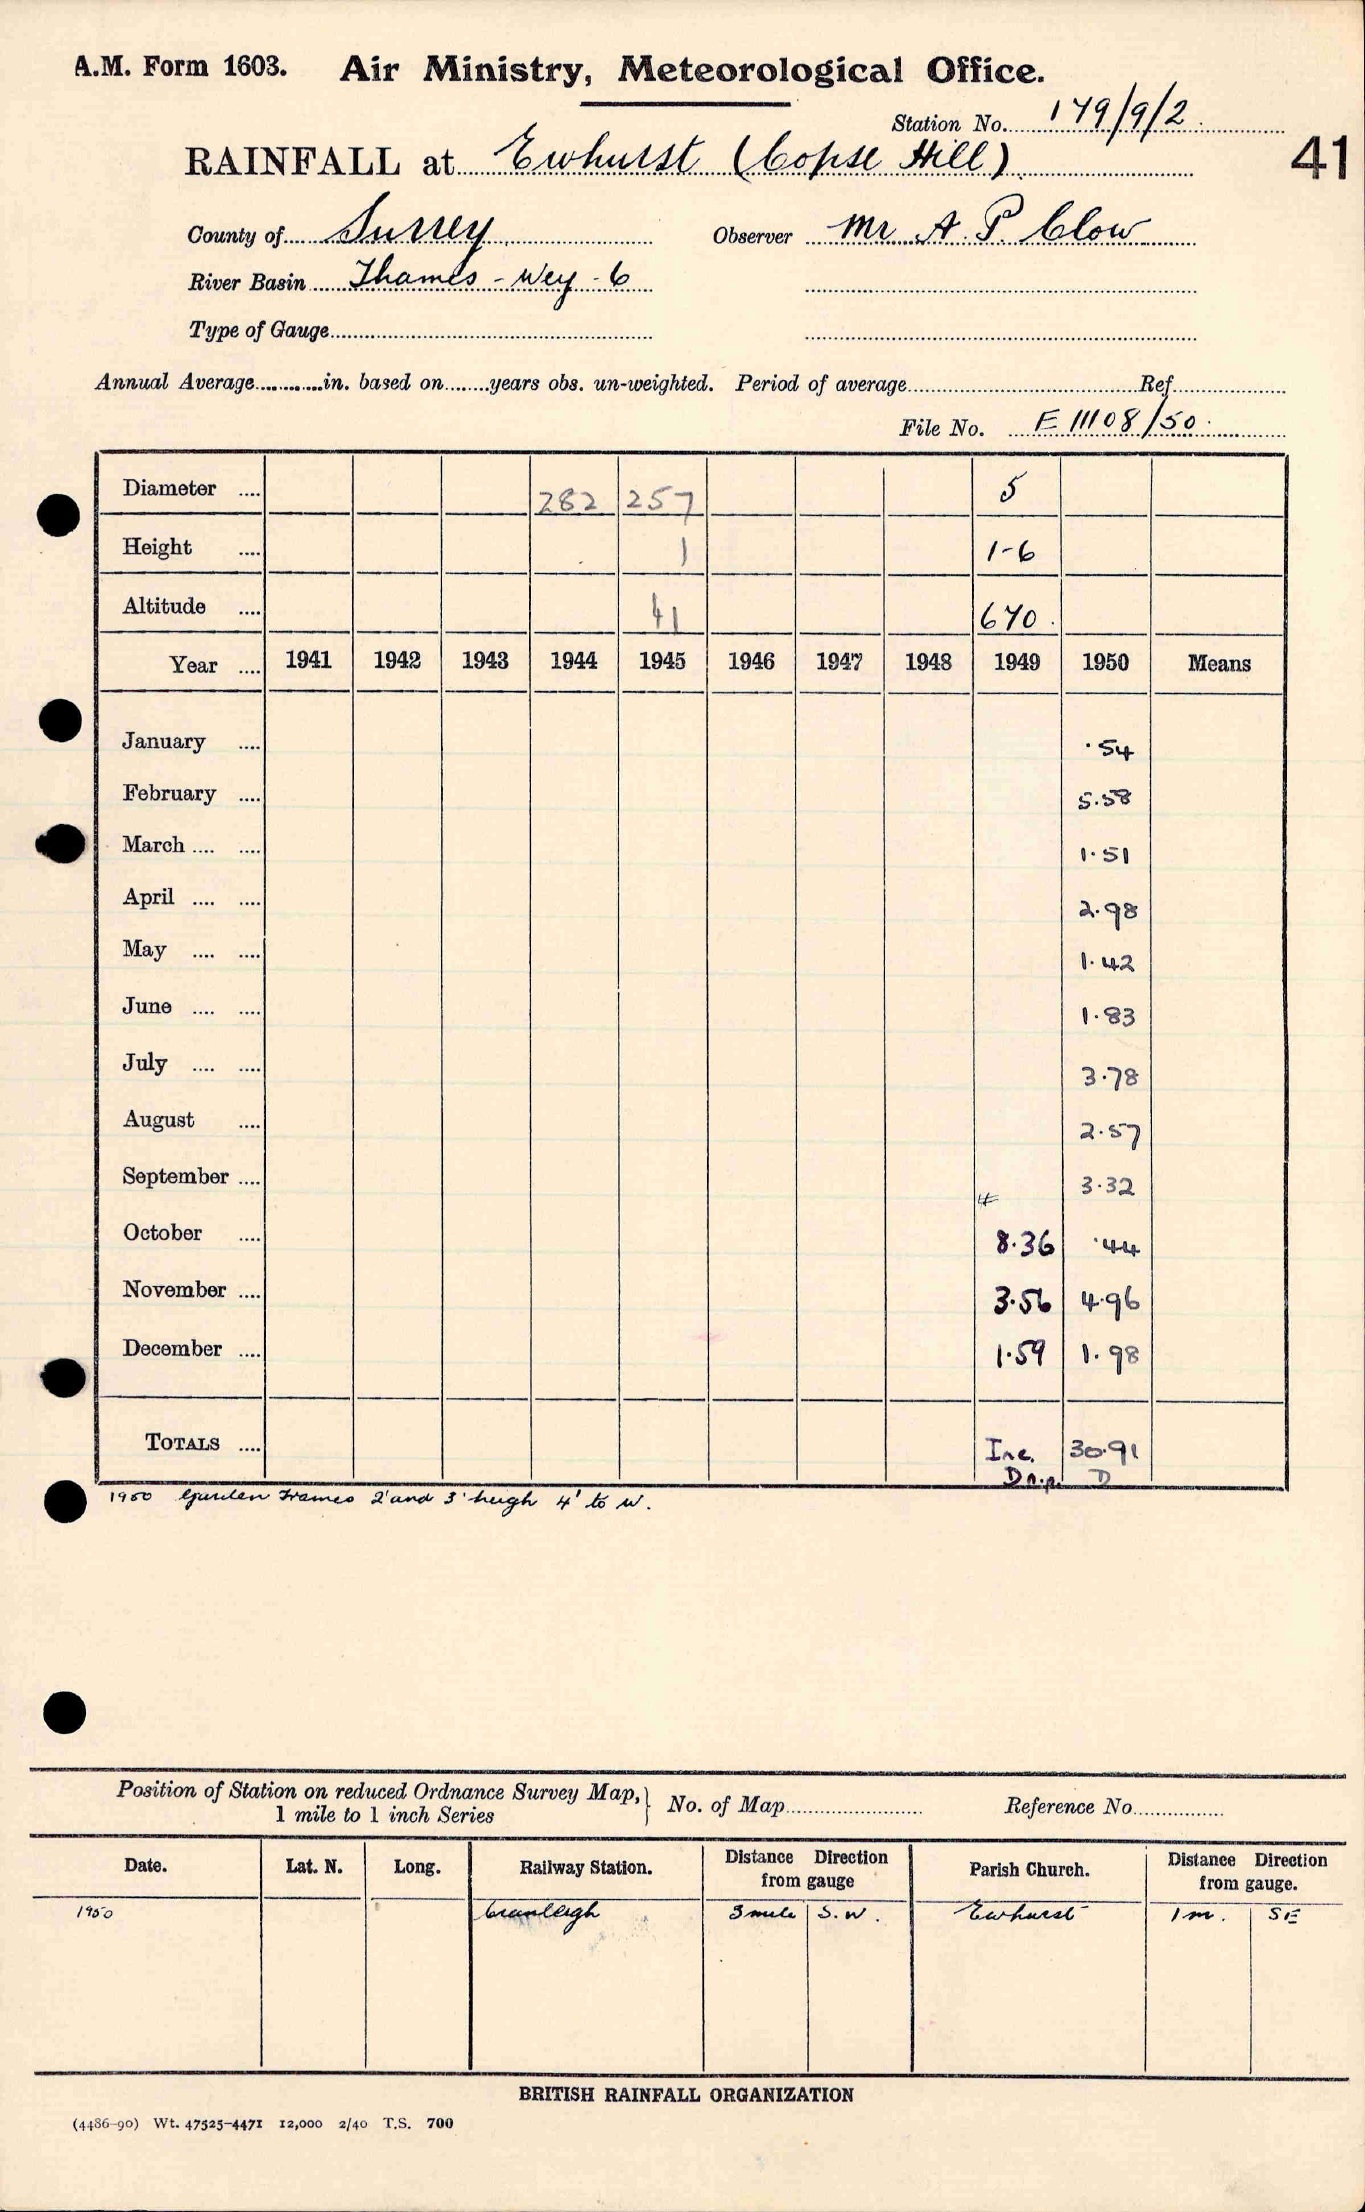 A.M. Form 1603. Air Ministry, Meteorological Office.
Station No. 179/9/2.
41
RAINFALL at Ewhurst (Copse Hill)
County of Surrey Observer Mr A. P. Clow
River Basin Thames - Wey - 6
Type of Gauge
Annual Average in. based on years obs. un-weighted. Period of average Ref
File No. E 11108/50.
Diameter 282 257 5
Height 1 1-6
Altitude 41 670.
Year 1941 1942 1943 1944 1945 1946 1947 1948 1949 1950 Means
January ·54
February 5·58
March 1·51
April 2·98
May 1·42
June 1·83
July 3·78
August 2·57
September 3·32
October 8·36 ·44
November 3·56 4·96
December 1·59 1·98
TOTALS Inc. 30·91
D n.p. D
1950 Garden Frames 2' and 3' heigh 4' to W.
Position of Station on reduced Ordnance Survey Map,
1 mile to 1 inch Series } No. of Map Reference No
Date. Lat. N. Long. Railway Station. Distance Direction from gauge Parish Church. Distance Direction from gauge.
1950 Cranleigh 3 mile S.W. Ewhurst 1 m. SE
BRITISH RAINFALL ORGANIZATION
(4486-90) Wt. 47525-4471 12,000 2/40 T.S. 700